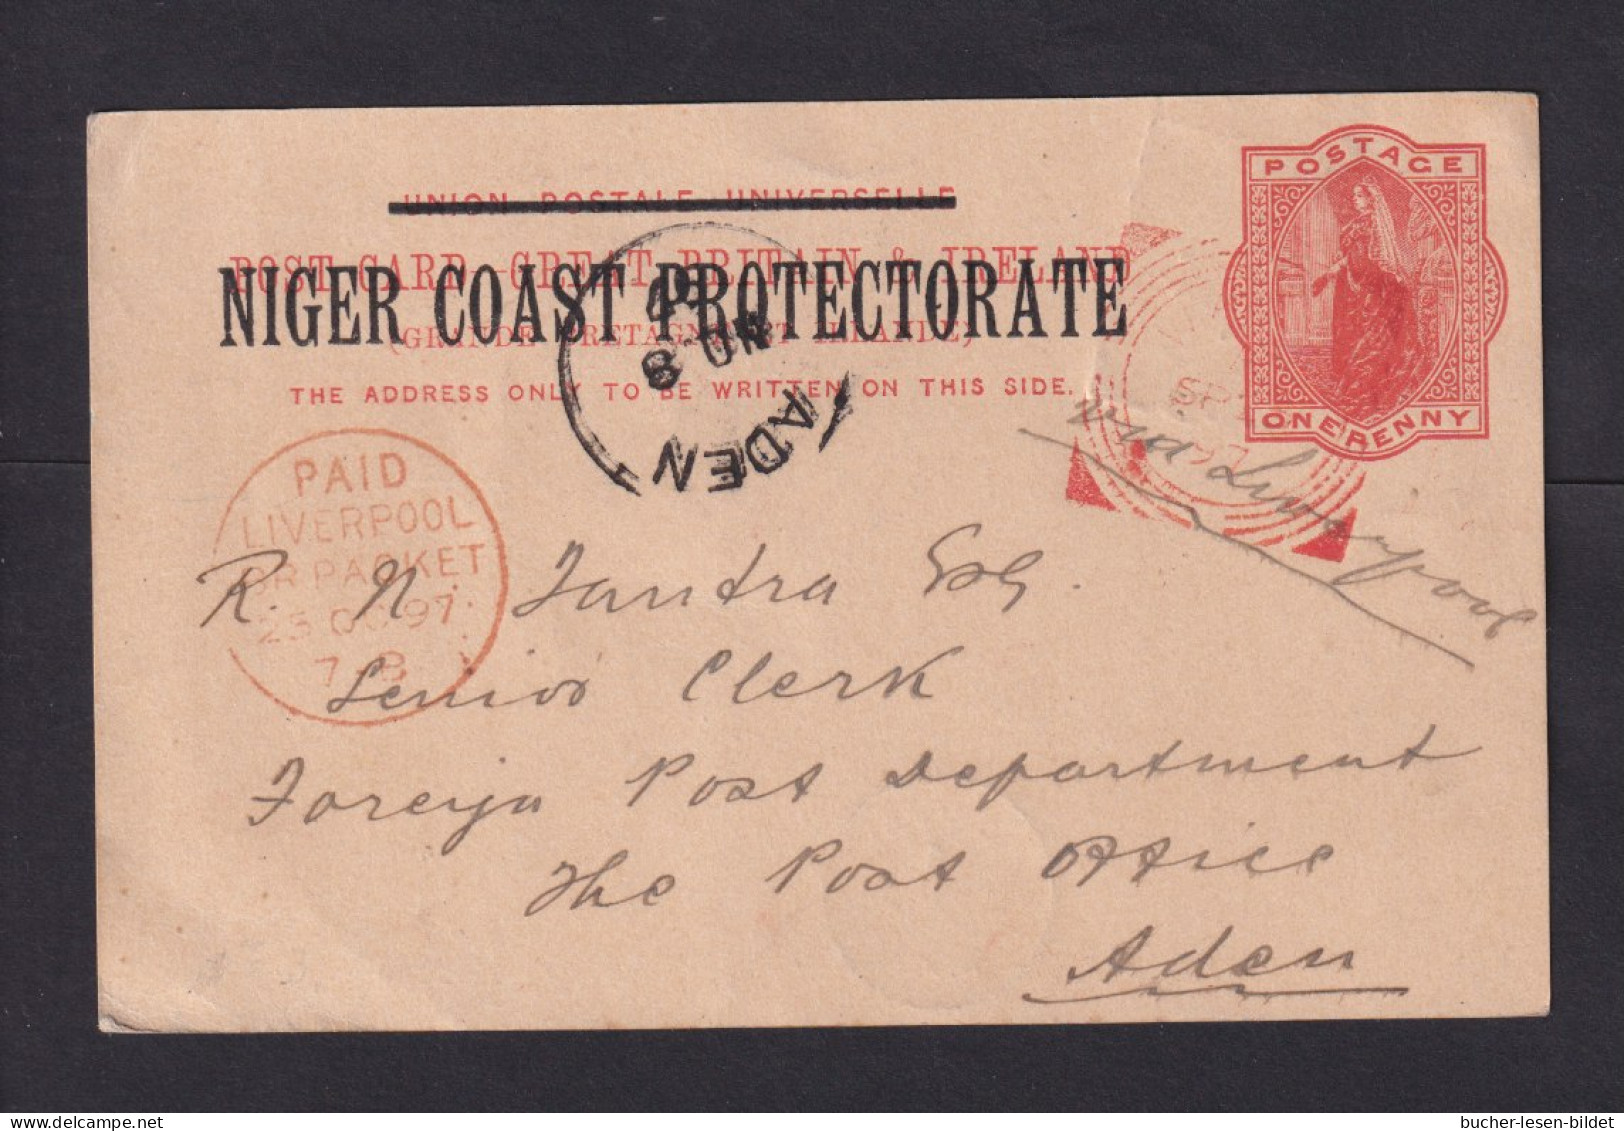 POSTAGE
UNION POSTALE UNIVERSELLE
POST CARD - GREAT BRITAIN & IRELAND
NIGER COAST PROTECTORATE
(GRANDE BRETAGNE ET IRLANDE)
THE ADDRESS ONLY TO BE WRITTEN ON THIS SIDE.
ONE PENNY
ADEN
NO 8
97
SP
97
via Liverpool
PAID
LIVERPOOL
BR PACKET
25 OC 97
7-B
R. N. Tantra Esq.
Senior Clerk
Foreign Post Department
The Post Office
Aden
bucher-lesen-bildet